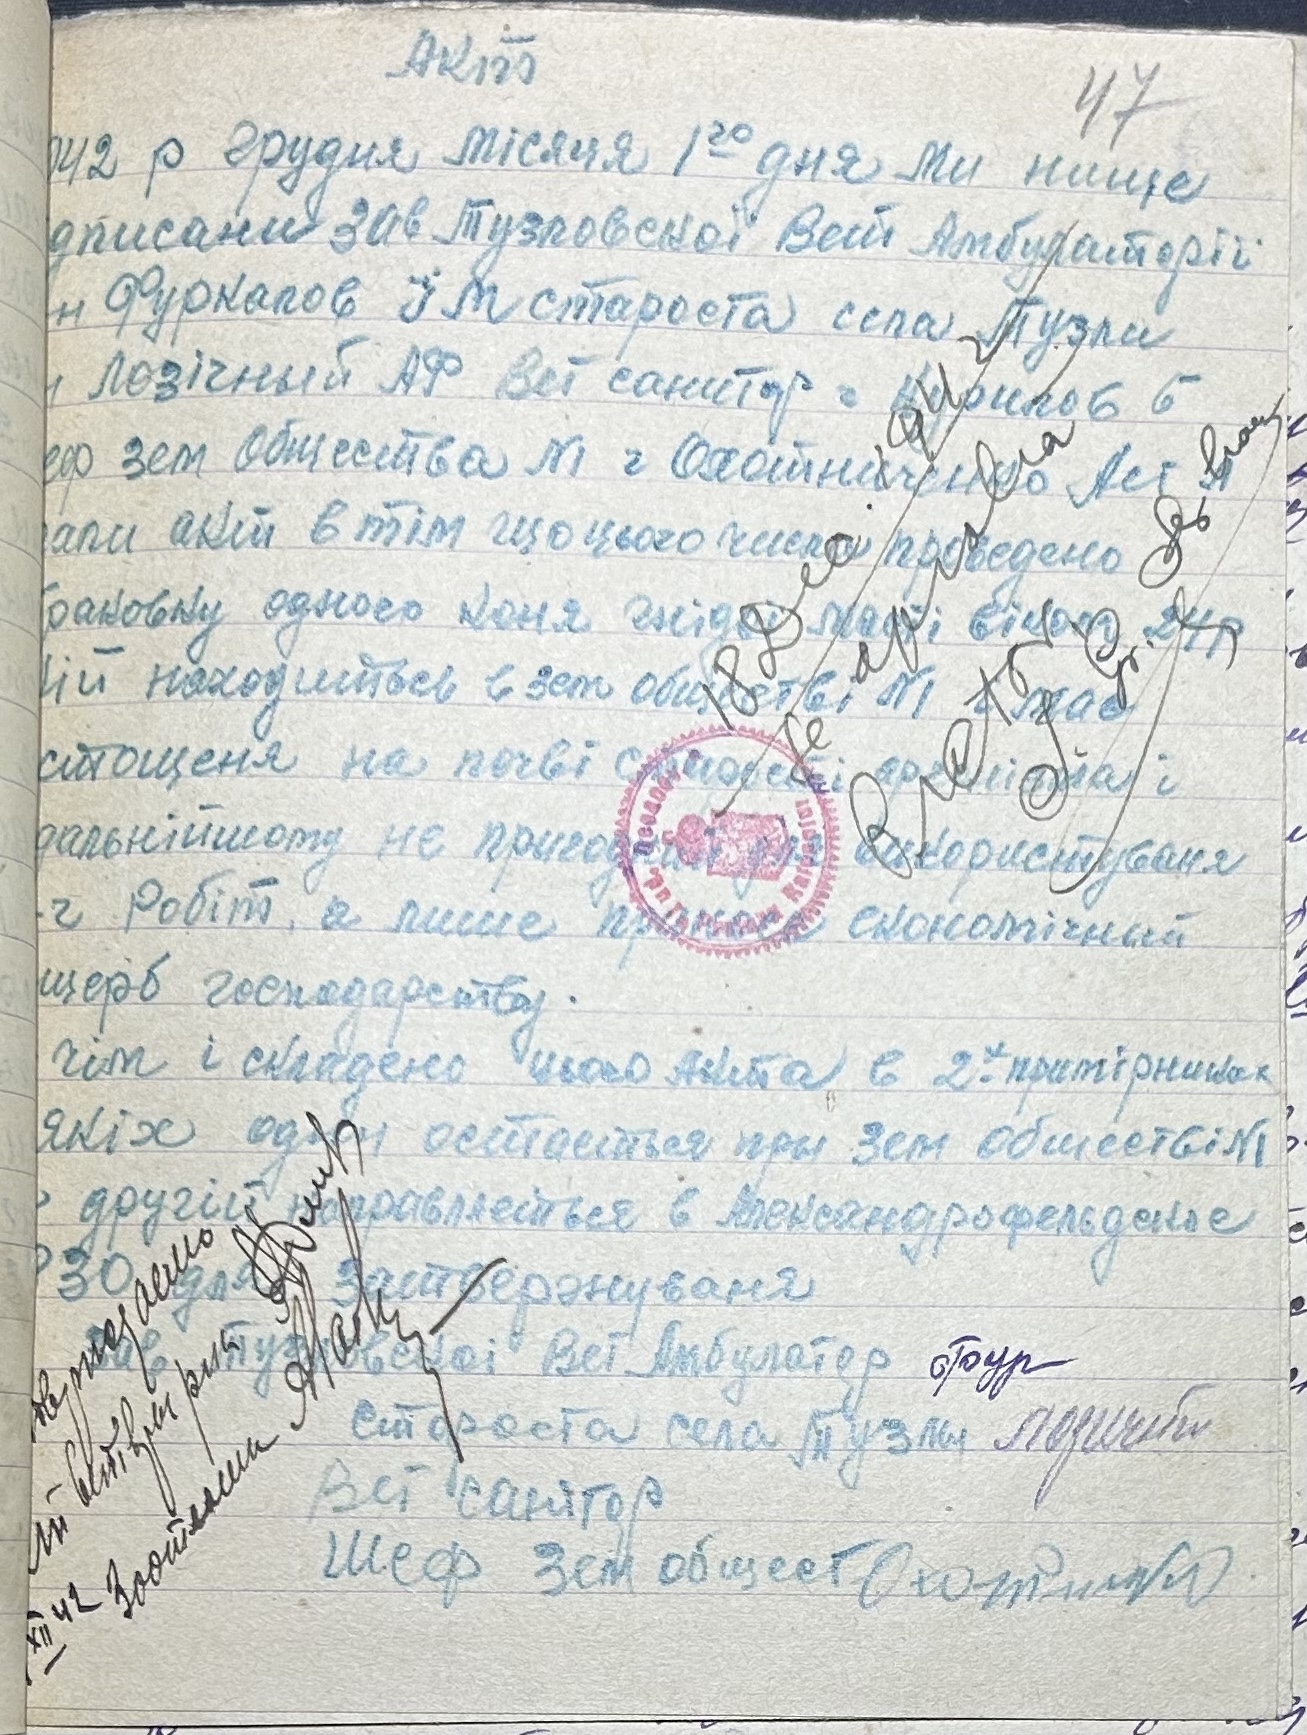 Акт
47
042 р грудня місяця 1го дня Ми нище
дписани Зав Тузловскої Вет Амбулаторії
н Фуркалов І М староста села Тузли
Лозічный АФ Вет санитар г Кирилов Б
еф зем Общества N1 г Охотниченко Ле
али акт в тім що цього числа проведено
браковку одного коня гнідої масті віком 24р
кій находиться в зем обществі N1 має
стощеня на почві старості организма і
дальнійшому не пригодный для використуваня
г Робіт, а лише принося економічный
щерб господарству.
чім і складено цього Акта в 2х примірниках
якіх один остається при Зем обществі N1
другій направляється в Александрофельдское
РЗО для застверржуваня
Зав Тузловскої Вет Амбулатор Фур
Староста села Тузлы Лозичный
Вет санитар
Шеф Зем общест Охотнич
18 Дек. 1942
XII 42